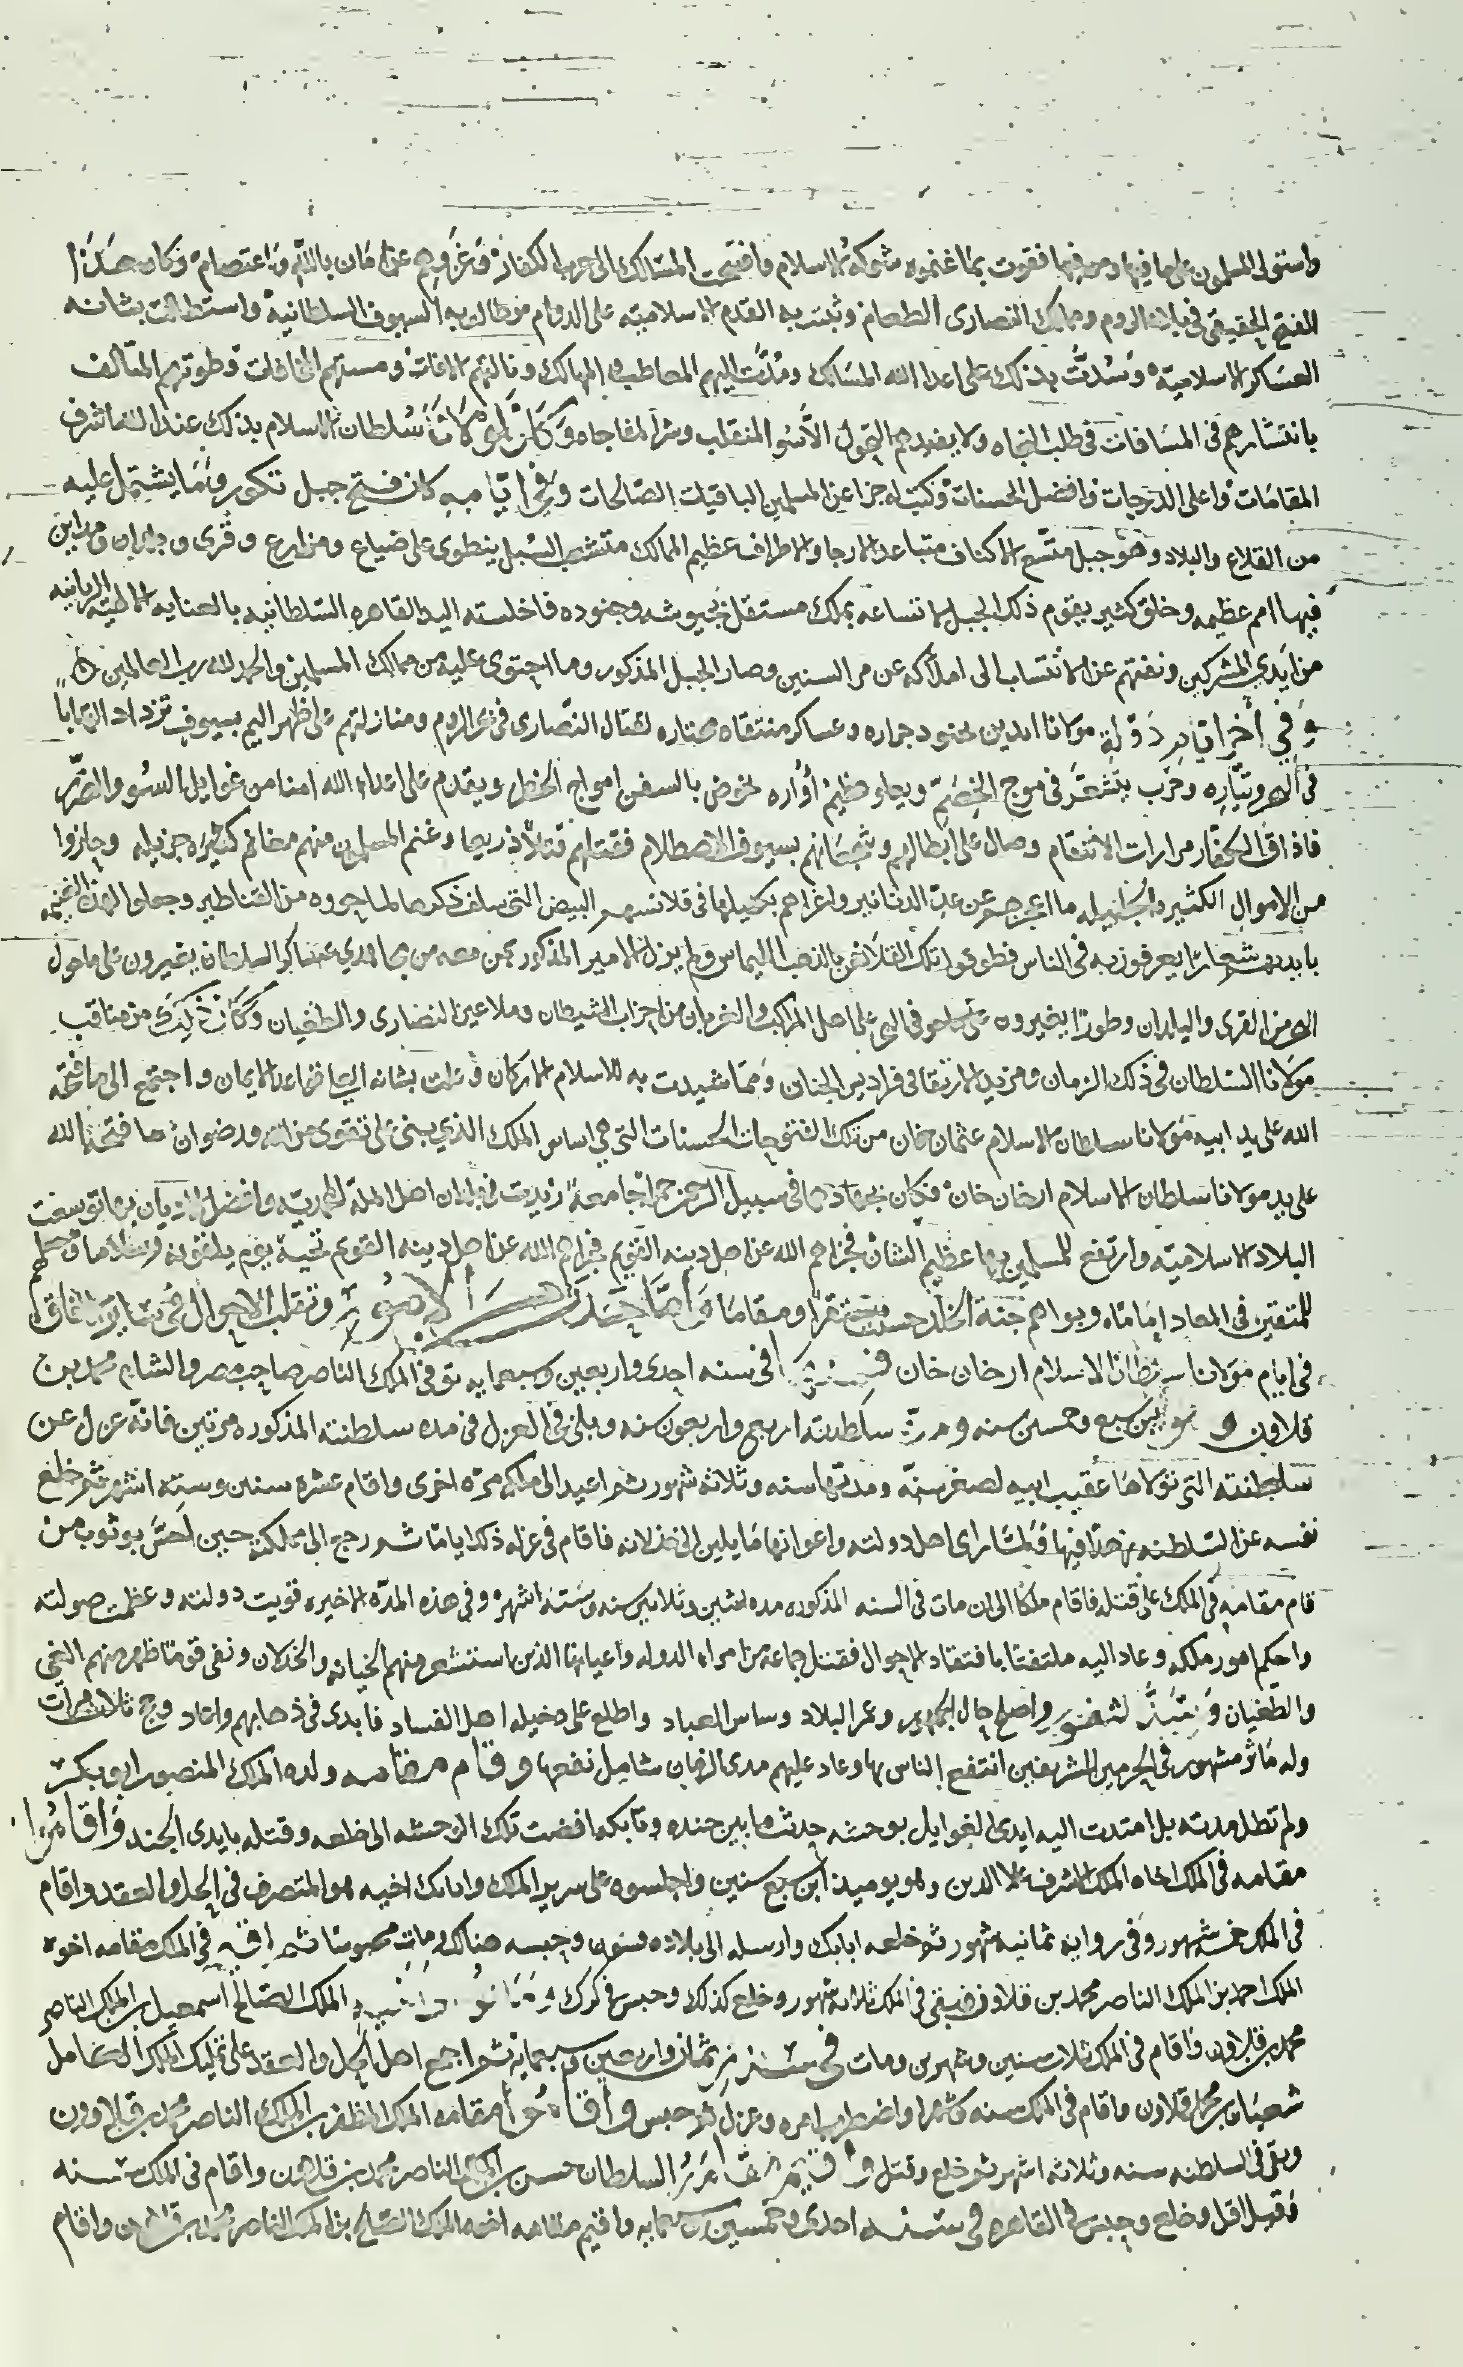 واستولى المسلمون على ما فيها ومن فيها فقويت بما غنموه شوكة الاسلام وافتتحت المسالك الى حرب الكفار وغزوهم عن ايمان بالله واعتصام وكان هذا
الفتح الحقيقي في بلاد الروم وممالك النصارى الطغام وثبتت به القدم الاسلامية على الدوام وطالت به السيوف السلطانية واستطالت بشانه
العساكر الاسلامية وسدت بذلك على اعدا الله المسالك ومدت اليهم المعاطب والمهالك ونالتهم الافات ومستهم المخافات وطوتهم المتالف
بانتشارهم في المسافات في طلب النجاه ولا يفيدهم القول الاسو المنقلب وشر المفاجاه وكان سلطان الاسلام بذلك عند الله اشرف
المقامات واعلى الدرجات وافضل الحسنات وكتب له جزا عن المسلمين الباقيات الصالحات وفي ايامه كان فتح جبل تكور وما يشتمل عليه
من القلاع والبلاد وهو جبل متسع الاكناف متباعد الارجا والاطراف عظيم الممالك متشعب السبل ينطوي على ضياع ومزارع وقرى وبلدان ومداين
فيها امم عظيمه وخلق كثير يقوم ذلك الجبل لاتساعه بملك مستقل بجيوشه وجنوده فاخلسته اليد القاهره السلطانيه بالعنايه الالهية الربانيه
من ايدي المشركين ونفتهم عن الانتساب الى املاكه عن مر السنين وصار الجبل المذكور وما احتوى عليه من ممالك المسلمين والحمد لله رب العالمين
وفي اخر ايام دولة مولانا بجنود جراره وعساكر منتقاه مختاره لقتال النصارى في بحر الروم ومنازلتهم على ظهر اليم بسيوف تزداد التهابا
في البحر وتياره وحرب بتسعر في موج الخضم ويعلو عظيم اواره يخوض بالسفن امواج الخطر ويقدم على اعداء الله امنا من غوايل السوء والضر
فاذاق الكفار مرارات الانتقام وصال على ابطالهم وشجعانهم بسيوف الاصطلام فقتلهم قتلا ذريعا وغنم المسلمون منهم مغانم كثيره جزيله وحازوا
من الاموال الكثيره الجزيله ما اعجزهم عن عد الدنانير واغراهم بكيلها في قلانسهم البيض التي سلف ذكرها لما حووه من القناطير وجعلوا لهذه الغنيمه
بايديهم شعارا يعرفون به في الناس فطوقوا تلك القلانس بالذهب ولم يزل الامير المذكور بمن معه من عساكر السلطان يغيرون على ما حول
البحر من القرى والبلدان وطورا يغيرون على اهل المراكب والغربان من احزاب الشيطان وملاعين النصارى والطغيان وكان ذلك من مناقب
مولانا السلطان في ذلك الزمان ومزيد الارتقا في فراديس الجنان ومما شيدت به للاسلام الاركان وعلت بشانه قواعد الايمان واجتمع الى ما فتحه
الله على يد ابيه مولانا سلطان الاسلام عثمان خان من تلك الفتوحات الحسنات التي هي اساس الملك الذي بني على تقوى من الله ورضوان ما فتحه الله
على يد مولانا سلطان الاسلام ارخان خان فكان بجهادهما في سبيل الرحمن جامعة زيدت في بلدان اهل الملة المحمدية وافضل الاديان بها توسعت
البلاد الاسلامية وارتفع للمسلمين بها عظيم الشان فجزاهم الله عن اهل دينه القويم تحية يوم يلقونه وسلاما وجعلهم
للمتقين في المعاد اماما وبواهم جنة الخلد حسنت مستقرا ومقاما واما الامور وتقلب الاحوال في ساير الافاق
في ايام مولانا سلطان الاسلام ارخان خان في سنه احدى واربعين وسبعمايه توفي الملك الناصر صاحب مصر والشام محمد بن
قلاون وهو ابن سبع وخمسين سنه ومدة سلطنته اربع واربعون سنه وبلي في العزل في مده سلطنته المذكوره مرتين فانه عزل عن
سلطنته التي تولاها عقيب ابيه لصغر سنه ومدتها سنه وثلاثه شهور ثم اعيد الى ملكه مره اخرى واقام عشره سنين وسته اشهر ثم خلع
نفسه عن السلطنه زهدا فيها فلما راى اهل دولته واعوانها مايلين الى خذلانه فاقام في عزله ذلك اياما ثم رجع الى مملكته حين احس بوثوب من
قام مقامه في الملك على قتله فاقام ملكا الى ان مات في السنه المذكوره مده اثنين وثلاثين سنه وسته اشهر وفي هذه المده الاخيره قويت دولته وعظمت صولته
واحكم امور ملكه وعاد اليه ملتفتا بافتقاد الاحوال فقتل جماعة من امراء الدوله واعيانها الذين استشعر منهم الخيانه والخذلان ونفى قوما ظهر منهم البغي
والطغيان الثغور واصلح حال الجمهور وعمر البلاد وساس العباد واطلع على مخيله اهل الفساد فابدى في ذهابهم واعاد وحج ثلاث مرات
وله ماثر مشهوره في الحرمين الشريفين انتفع الناس بها وعاد عليهم مدى الزمان شامل نفعها وقام مقامه ولده الملك المنصور ابو بكر
ولم تطل مدته بل امتدت اليه ايدى الغوايل بوحشه حدثت ما بين جنده وتابكه افضت تلك الوحشه الى خلعه وقتله بايدى الجند واقاموا
مقامه في الملك اخاه الملك الاشرف علا الدين وهو يوميذ ابن سبع سنين واجلسوه على سرير الملك واتابك اخيه هو المتصرف في الحل والعقد واقام
في الملك خمسة شهور وفي روايه ثمانيه شهور ثم خلعه اتابك وارسله الى بلاده وحبسه هناك ومات محبوسا ثم اقيم في الملك مقامه اخوه
الملك احمد بن الملك الناصر محمد بن قلاون فبقي في الملك ثلاثه شهور وخلع كذلك وحبس في كرك الملك الصالح اسمعيل بن الملك الناصر
محمد بن قلاون واقام في الملك ثلاث سنين وشهرين ومات في سنة ثمان واربعين وسبعمايه ثم اجمع اهل الحل والعقد على تمليك الملك الكامل
شعبان بن محمد قلاون واقام في الملك سنه واضطرب امره وعزل ثم حبس واقاموا مقامه الملك المظفر بن الملك الناصر محمد بن قلاوون
وبقي في السلطنه سنه وثلاثه اشهر ثم خلع وقتل السلطان حسن بن الملك الناصر محمد بن قلاون واقام في الملك سنه
وقيل اقل وخلع وحبس في القاهره في سنه احدى وخمسين وسبعمايه واقيم مقامه اخوه الملك الصالح بن الملك الناصر محمد بن قلاون واقام